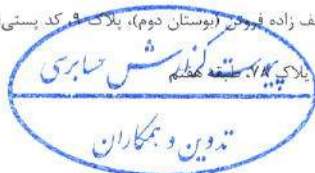 ف زاده فروتن (بوستان دوم)، پلاک ۹، کد پستی
پلاک ۷۸، طبقه هفتم
پیوست گزارش حسابرسی
تدوین و همکاران